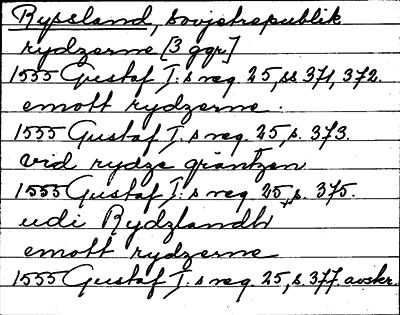 Ryssland, Sovjetrepublik
rydzerne [3 ggr]
1555 Gustaf I:s reg. 25, ss. 371, 372.
emott rydzerne.
1555 Gustaf I:s reg. 25, s. 373.
vid rydze gräntzen
1555 Gustaf I:s reg. 25, s. 375.
udi Rydzlandh
emott rydzerne
1555 Gustaf I:s reg. 25, s. 377. avskr.